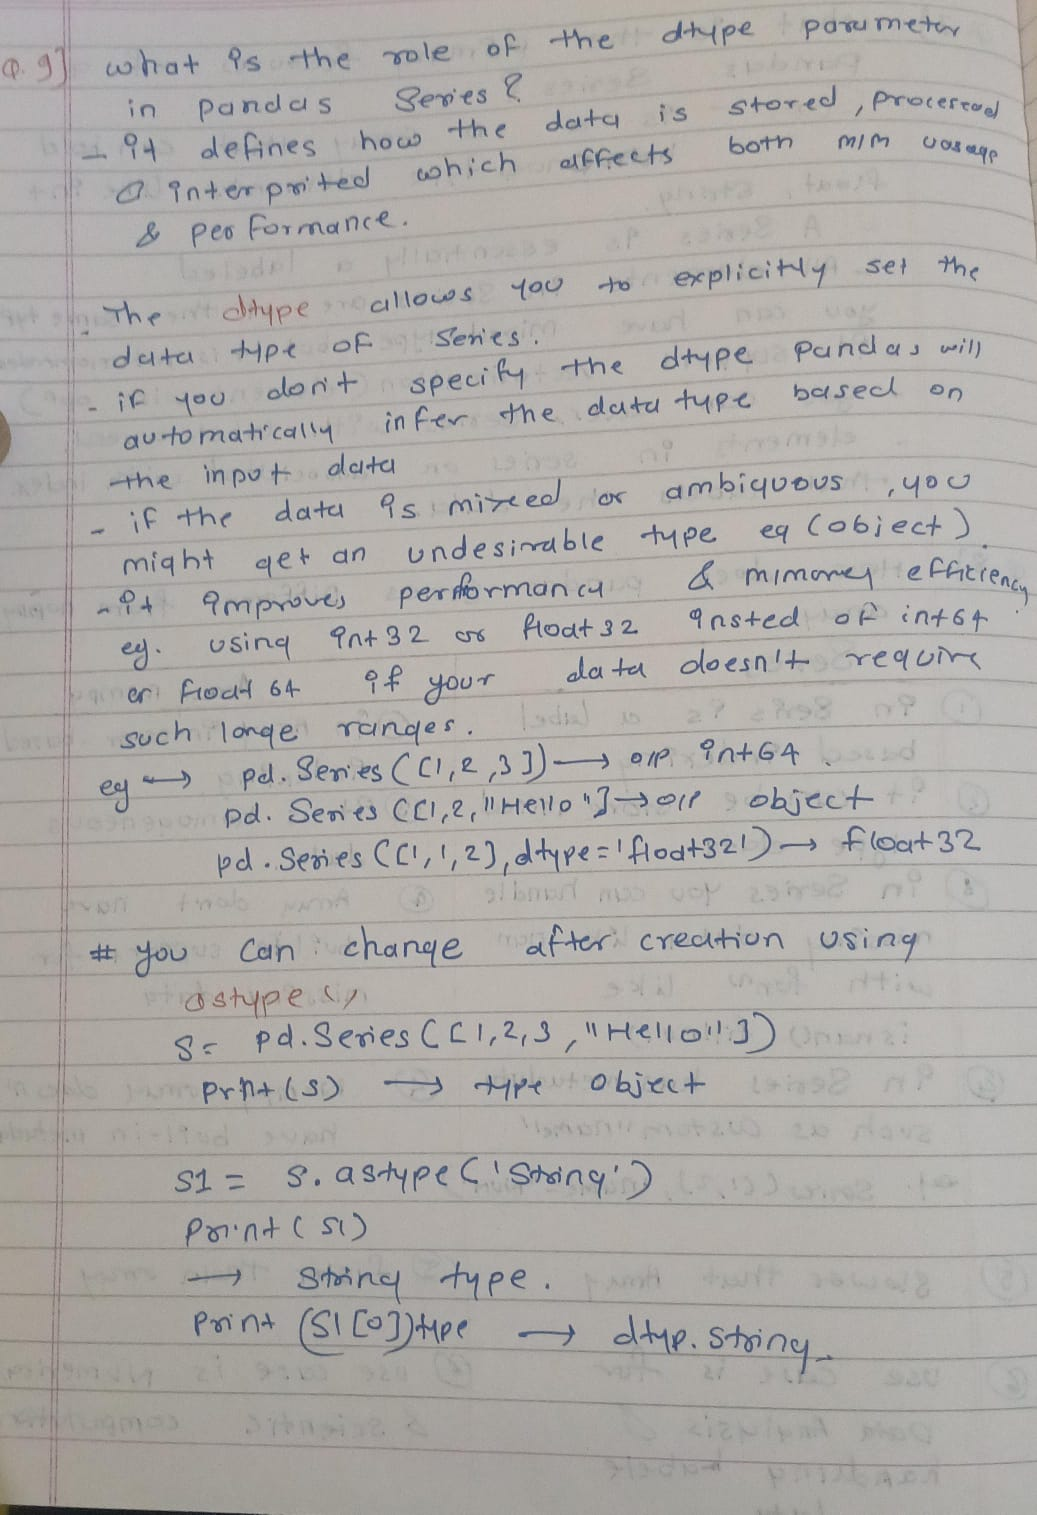 Q.9] what is the role of the dtype parameter
in pandas Series?
- it defines how the data is stored, processed
& interprited which affects both m/m uasage
& performance.
- The dtype allows you to explicitly set the
data type of Series.
- if you don't specify the dtype Pandas will
automatically infer the data type based on
the input data
- if the data is mixed or ambiguous, you
might get an undesirable type eg (object).
- it improves performance & mimorey efficiency
eg. using int32 or float32 insted of int64
or float 64 if your data doesn't require
such large ranges.
eg → pd. Series ([1,2,3]) → o/p int64.
pd. Series ([1,2,"Hello"] → o/p object
pd. Series ([1,1,2], dtype='float32') → float32
# you can change after creation using
astype()
S= pd.Series ([1,2,3,"Hello"])
print(s) → type object
S1 = S.astype('String')
Print(S1)
→ String type.
Print (S1[0])type → dtyp. string